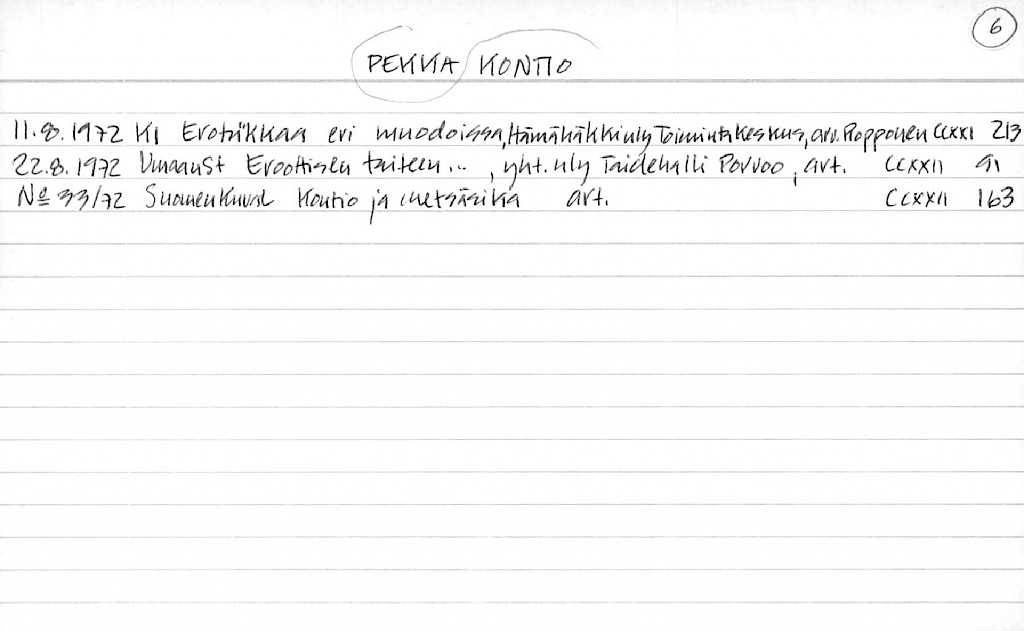 6
PEKKA KONTIO
11.8.1972 KI Erotiikkaa eri muodoissa, Hämähäkkinly Toimintakeskus, arv. Ropponen CCXXI 213
22.8.1972 Eroottisen taiteen... , yht. nly Taidehalli Porvoo, art. CCXXII 91
No 33/72 SuomenKuval Kontio ja metsäsika art. CCXXII 163